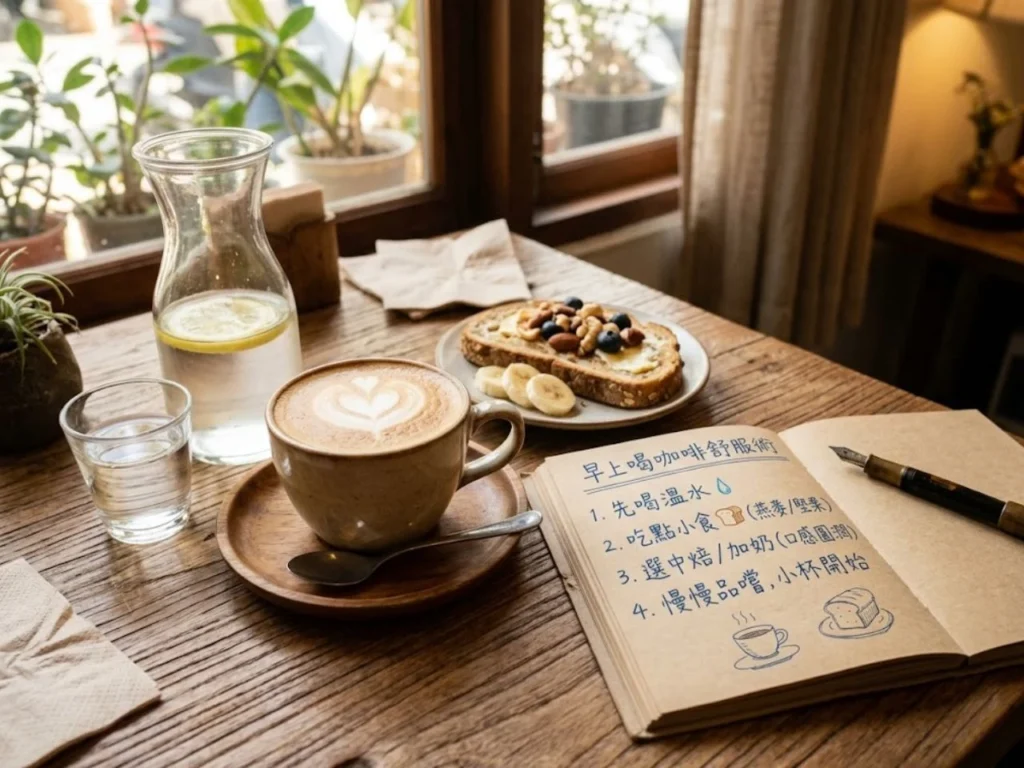 早上喝咖啡舒服術
1. 先喝溫水💧
2. 吃點小食🍞(燕麥/堅果)
3. 選中焙/加奶(口感圓潤)
4. 慢慢品嚐,小杯開始